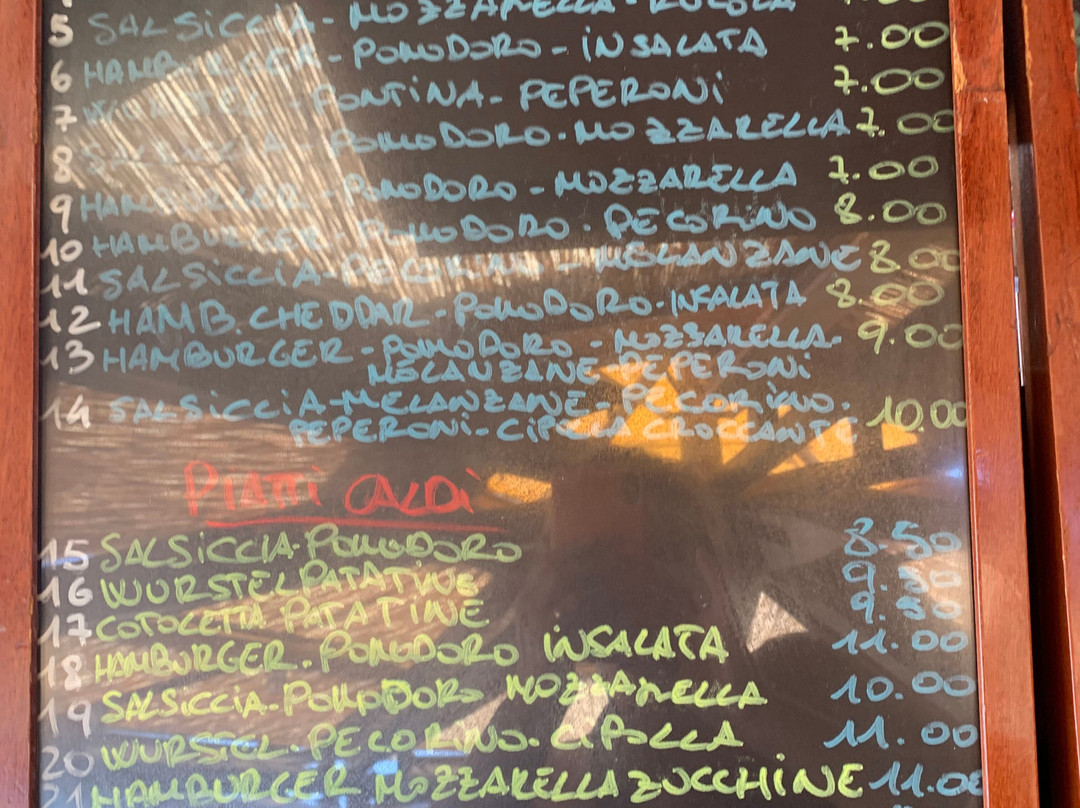 5 SALSICCIA - MOZZARELLA - RUCOLA
6 HAMBURGER - POMODORO - INSALATA 7.00
7 WURSTEL - FONTINA - PEPERONI 7.00
8 SALSICCIA - POMODORO - MOZZARELLA 7.00
9 HAMBURGER - POMODORO - MOZZARELLA 7.00
10 HAMBURGER - POMODORO - PECORINO 8.00
11 SALSICCIA - PECORINO - MELANZANE 8.00
12 HAMB. CHEDDAR - POMODORO - INSALATA 8.00
13 HAMBURGER - POMODORO - MOZZARELLA - 9.00
MELANZANE PEPERONI
14 SALSICCIA - MELANZANE - PECORINO - 10.00
PEPERONI - CIPOLLA CROCCANTE
PIATTI CALDI
15 SALSICCIA - POMODORO 8.50
16 WURSTEL PATATINE 9.50
17 COTOLETTA PATATINE 9.50
18 HAMBURGER - POMODORO INSALATA 11.00
19 SALSICCIA - POMODORO MOZZARELLA 10.00
20 WURSTEL - PECORINO - CIPOLLA 11.00
21 HAMBURGER MOZZARELLA ZUCCHINE 11.00